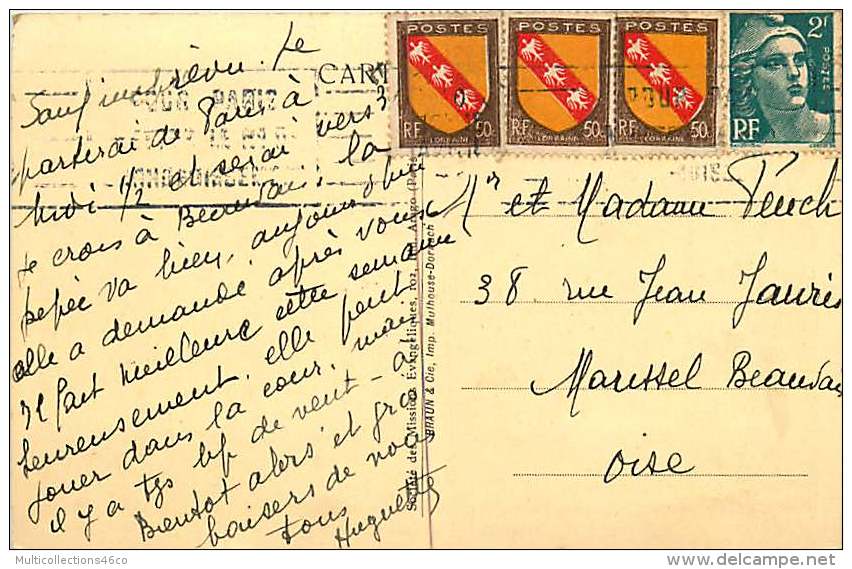 CART
Sauf imprévu. Je
partirai de Paris à
midi 1/2 et serai vers 3
je crois à Beauvais, la
pépée va bien, aujourd'hui
elle a demandé après vous.
Il fait meilleure cette semaine
heureusement, elle peut
jouer dans la cour, mais
il y a tjs bp de vent - à
Bientôt alors et gros
baisers de nous
tous
Huguette
Société des Missions Evangéliques, 102,
BRAUN & Cie, Imp. Mulhouse-Dornach
POSTES
RF LORRAINE 50c
POSTES
RF LORRAINE 50c
POSTES
RF LORRAINE 50c
2F
POSTES
RF
Mr et Madame Pench
38 rue Jean Jaurès
Marissel Beauvais
Oise
Multicollections46co
delcampe.net